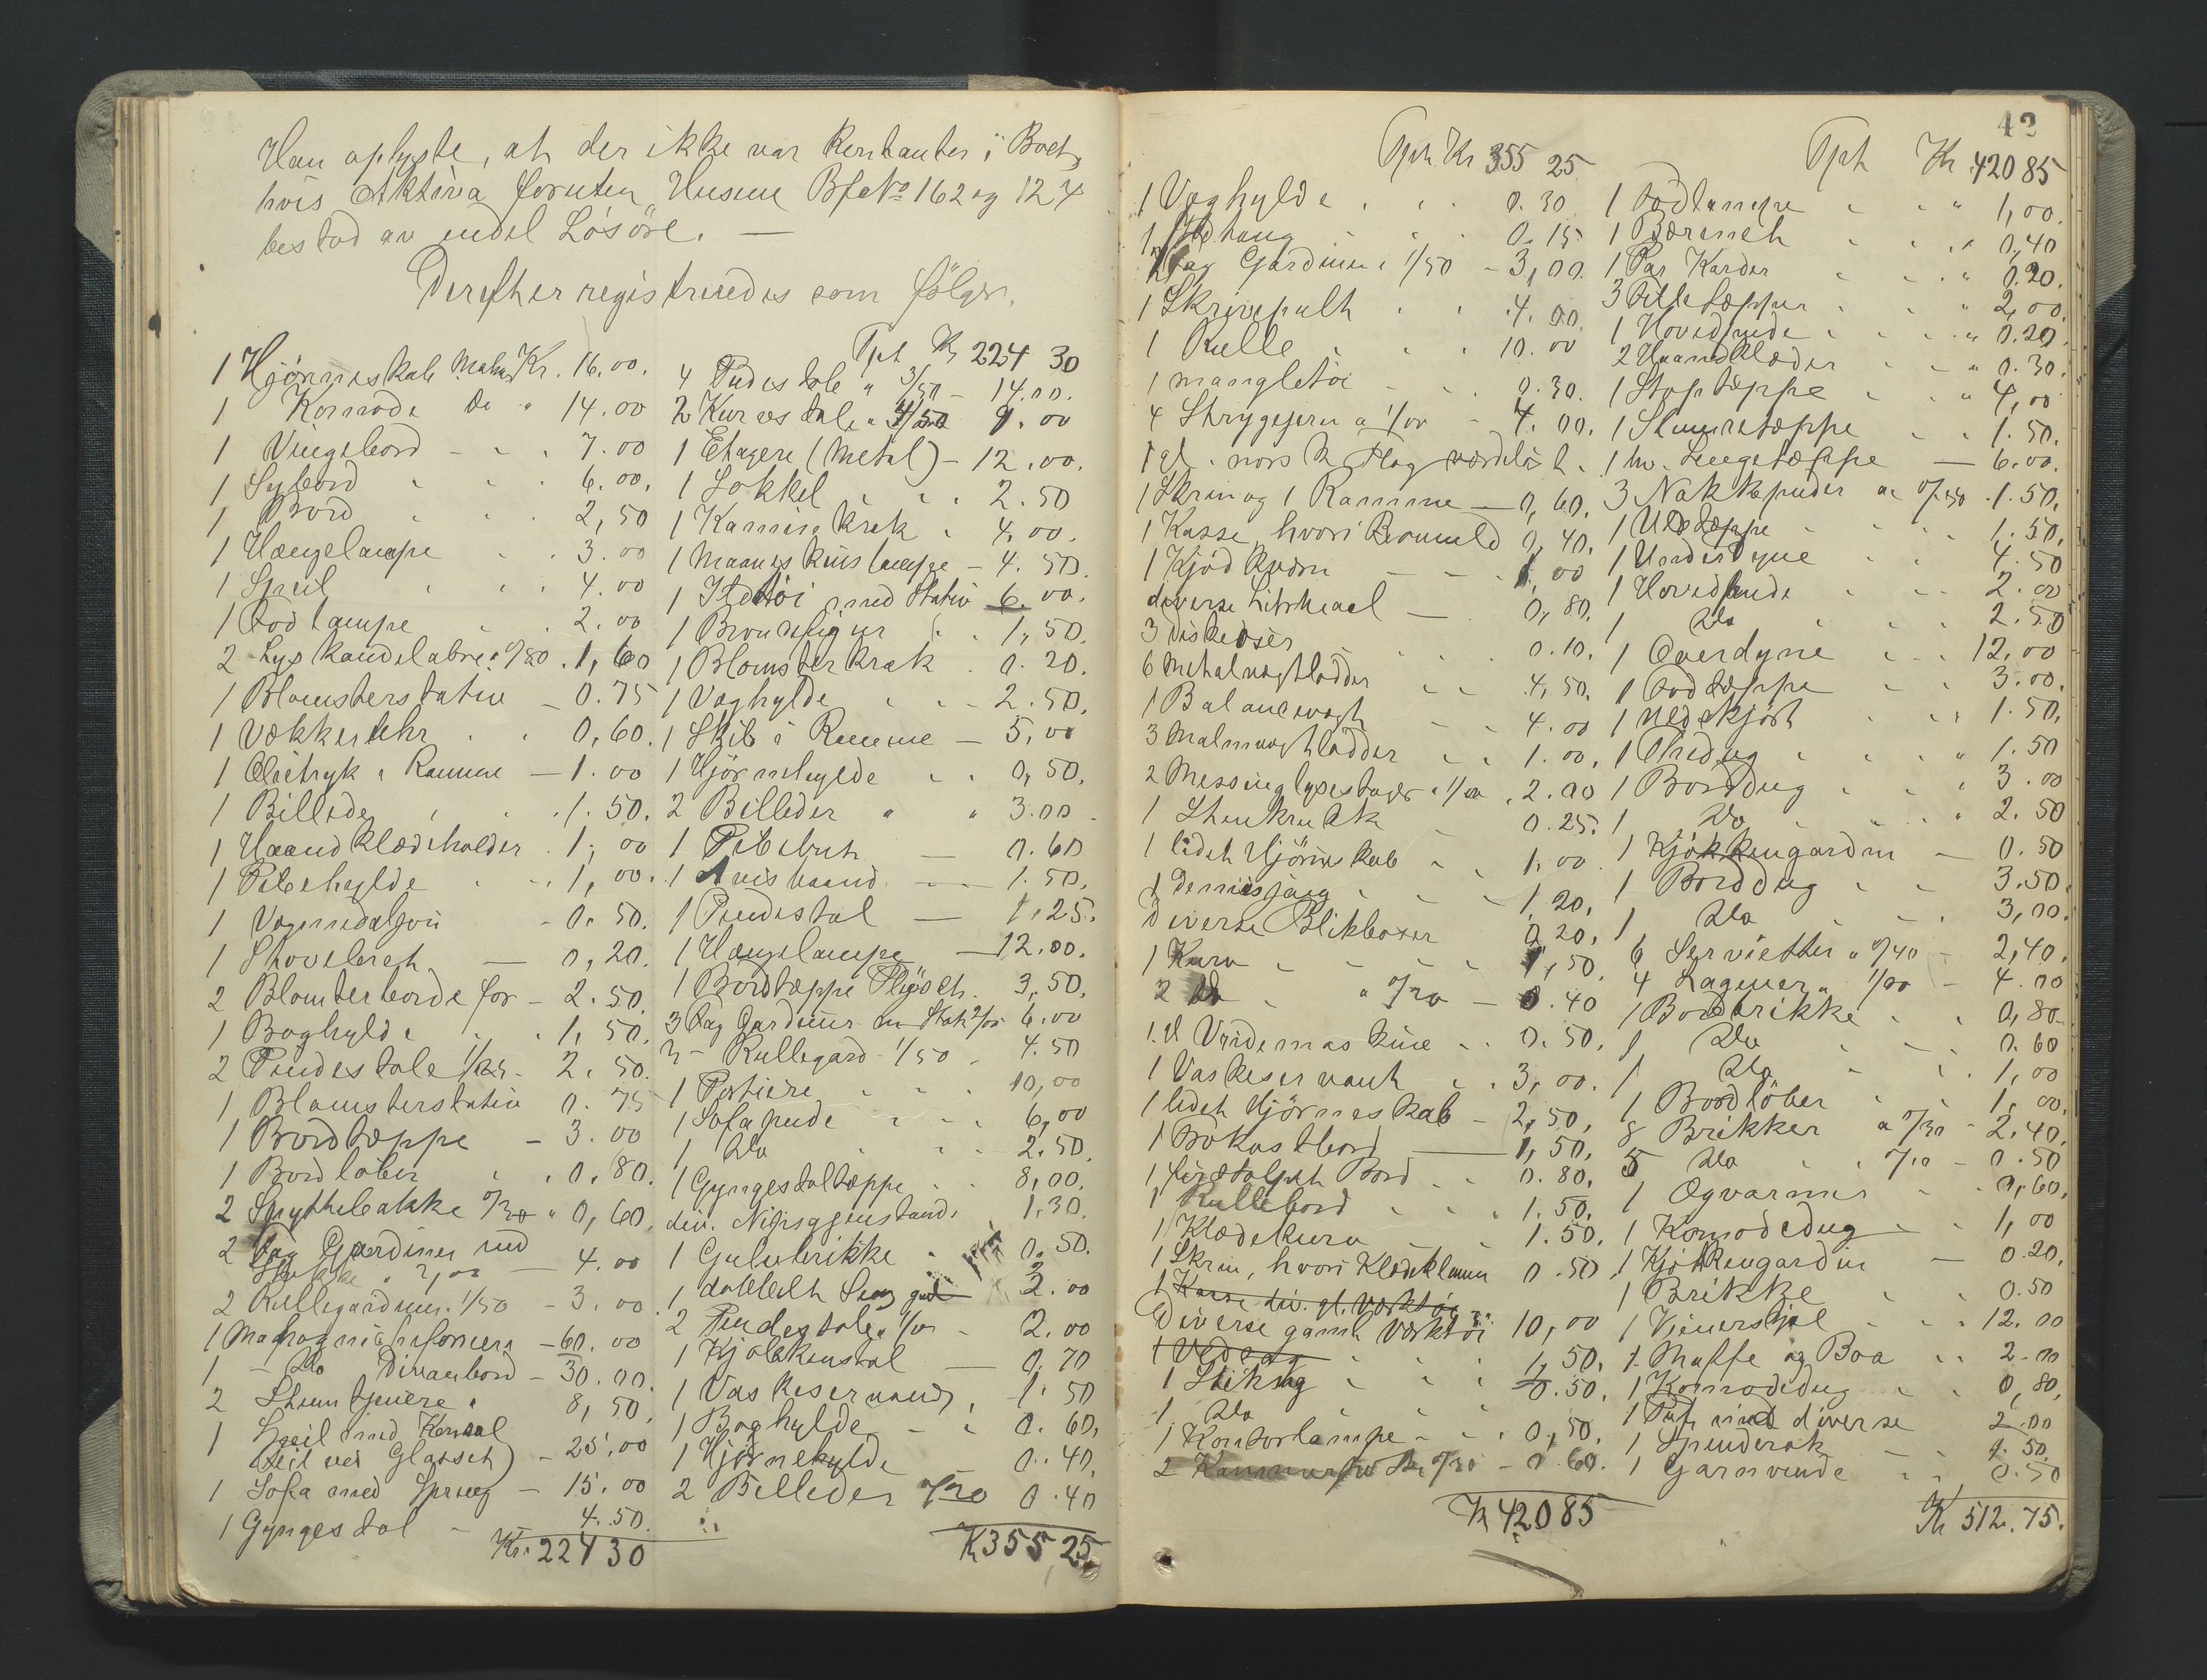 Han oplyste, at der ikke var Kontanter i Boet,
hvis Aktiva foruten Husene Bf. No 162 og 124
bestod av endel Løsøre. —
Derefter registreredes som følger.
1 Hjørneskab Mahn Kr. 16.00.
1 Komode do " 14.00
1 Vingebord - 7.00
1 Sybord 6.00.
1 Bord 2,50
1 Hængelampe 3.00
1 Speil 4.00
1 Fodlampe 2.00
2 Lyskandelabre a 0/80 . 1,60
1 Blomsterstativ - 0.75
1 Vækkeruhr 0,60.
1 Olietryk i Ramme - 1.00
1 Billede 1.50.
1 Haandklædeholder . 1,00
1 Pibehylde 1,00.
1 - 0.50.
1 Skovlbret — 0,20.
2 Blomsterborde for - 2.50.
1 Boghylde 1,50.
2 Pindestole 1/25 - 2.50.
1 Blomsterstativ 0.75
1 Bordtæppe - 3.00
1 Bordløber 0.80.
2 Spyttebakke 0/30 " 0,60.
2 Fag Gardiner med
Stokke a 2,00 — 4.00
2 Rullegardiner 1/50 - 3.00
1 Mahogni Chifoniere - 60.00
1 - Do Divanbord - 30.00.
2 Stumtjenere 8,50.
1 Speil med Konsol
(Feil ved Glasset) - 25.00
1 Sofa med Spring - 15.00
1 Gyngestol - 4.50.
Kr. 224 30
Tprt Kr 224 30
4 Pidestole a 3/50 - 14.00.
2 Kurvestole a 4/50 9.00
1 Etagere (Metal) - 12.00.
1 Sokkel 2.50
1 Kaminkrak 4.00.
1 Maaneskinslampe - 4.50.
1 Ildtøi med Stativ 6.00.
1 Broncefigur 1,50.
1 Blomsterkrak 0.20.
1 Vaghylde 2.50.
1 Skib i Ramme — 5,00
1 Hjørnehylde 0,50.
2 Billeder " " 3.00
1 Pibebret — 0.60
1 Avis — 1.50.
1 Pindestol — 1,25.
1 Hængelampe — 12.00.
1 Bordtæppe Plysch. 3,50.
3 Fag Gardiner m Stok 2/00 6.00
3 - Rullegard 1/50 4.50
1 Portiere 10,00
1 Sofapude 6,00
1 Do 2.50.
1 Gyngestoltæppe 8,00.
div. Nipsgjenstande 1,30.
1 Gulvbrikke 0,50.
1 dobbelt Seng 2.00
2 Pindestole a 1/00 - 2.00
1 Kjøkkenstol — 0.70
1 Vaskeservant 1.50
1 Boghylde - 0.60.
1 Hjørnehylde 0.40.
2 Billeder 0/20 0.40
K 355,25
42
Tprt Kr 355 25
1 Vaghylde 0.30
1 0.15
2 Fag Gardiner a 1/50 - 3,00.
1 Skrivepult 4.00.
1 Rulle 10.00
1 mangletøi 0.30.
4 Strygejern a 1/00 - 4.00.
1 gl. norsk Flag værdiløst.
1 Skrin og 1 Ramme — 0,60.
1 Kasse, hvori Bomuld 0,40.
1 Kjødkværn - - 1,00
diverse — 0,80.
3 0.10.
6 Metalvægtlodder 4,50.
1 Balancevægt 4.00
3 Malmvægtlodder 1.00.
2 Messinglysestager a 1/00 . 2.00
1 Stenkrukke 0.25.
1 lidet Hjørneskab 1.00
1 Demisjang 1,20.
Diverse Blikboxer 0,20.
1 Kurv 1,50.
2 Do " 0/20 - 0.40
1 gl Vridemaskine 0.50.
1 Vaskeservant 3,00.
1 lidet Hjørneskab - 2,50.
1 Bord — 1,50.
1 Bord 0.80.
1 Rullebord 1.50.
1 Klædekurv 1.50.
1 Skrin, hvori Klædeklemmer 0.50.
1 Kasse div. gl. Værktøi
Diverse gamle Værktøi 10,00
1 Vedsag 1,50.
1 Stiksag 0.50.
1 Do
1 Kontorlampe 0,50.
2 0/30 - 0.60.
Kr 420 85
Tprt Kr 420 85
1 Fodlampe 1,00.
1 Bærenet 0,40
1 Par Karder 0.20.
3 Filletæpper 2,00.
1 Hovedpude 0.20.
2 Haandklæder 0.30.
1 Stoptæppe 4,00
1 1.50.
1 hv. Sengetæppe — 6.00.
3 Nakkepuder a 0/50 . 1.50.
1 Uldtæppe 1.50.
1 Underdyne 4.50
1 Hovedpude 2.00
1 Do 2.50
1 Overdyne 12,00
1 Fodtæppe 3.00.
1 Uldskjørt 1.50.
1 1.50
1 Borddug 3.00
1 Do 2.50
1 Kjøkkengardin — 0.50
1 Borddug 3.50.
1 Do 3,00.
6 Servietter a 0/40 - 2,40.
4 Lagner a 1/00 - 4.00
1 Bordbrikke 0,80
1 Do 0.60
1 Do 1,00
1 Bordløber 1,00.
8 Brikker a 0/30 - 2.40.
5 Do 0/10 - 0.50
1 Ægvarmer 0,60.
1 Komodedug 1,00
1 Kjøkkengardin — 0.20.
1 Brikke 0.50
1 Vienersjal 12.00
1 Muffe og Boa 2.00
1 Komodedug 0,80.
1 Puf med diverse 2.00
1 Spinderok 4.50.
1 Garnvinde 0.50
Kr 512.75.